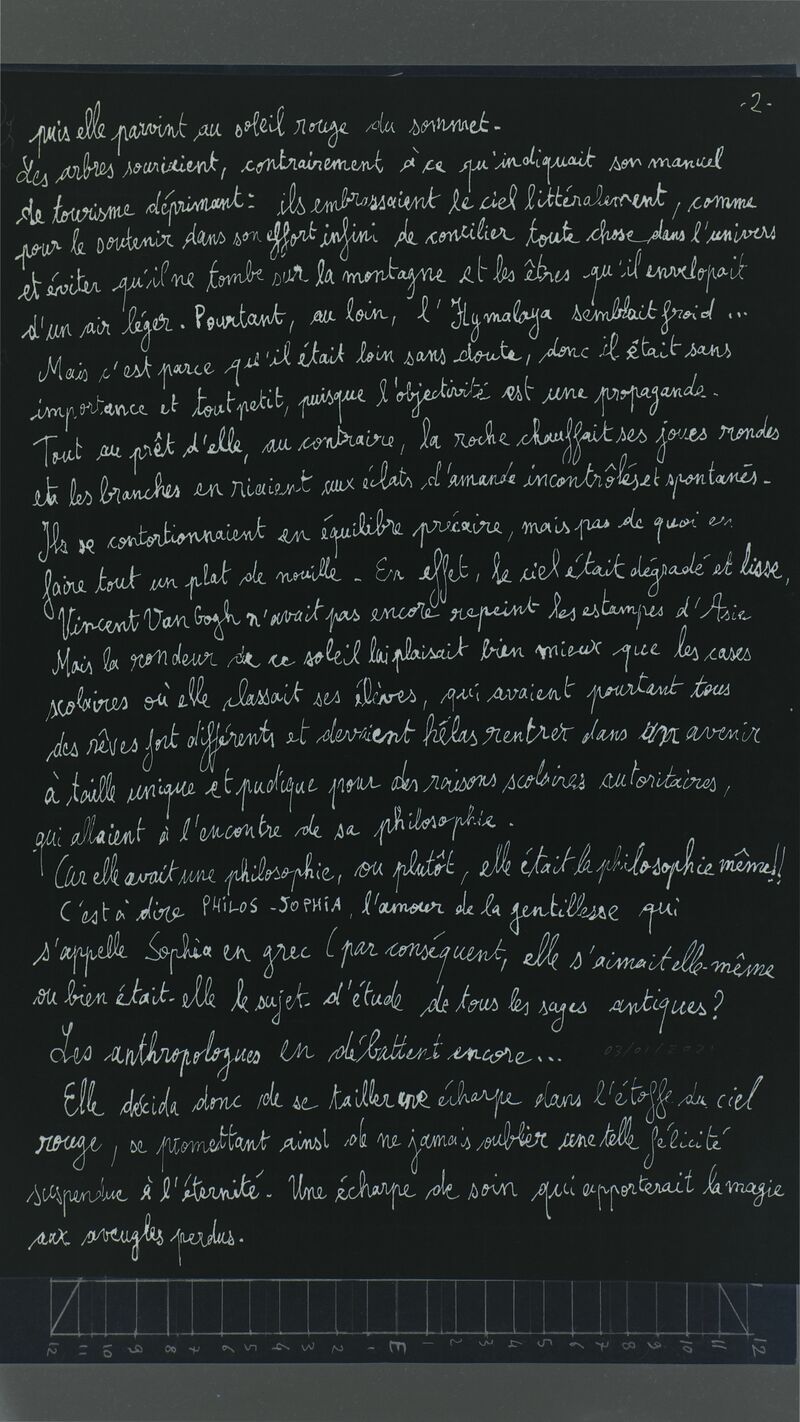 -2-
puis elle parvint au soleil rouge du sommet.
Les arbres souriaient, contrairement à ce qu'indiquait son manuel
de tourisme déprimant : ils embrassaient le ciel littéralement, comme
pour le soutenir dans son effort infini de concilier toute chose dans l'univers
et éviter qu'il ne tombe sur la montagne et les êtres qu'il envelopait
d'un air léger. Pourtant, au loin, l'Hymalaya semblait froid ...
Mais c'est parce qu'il était loin sans doute, donc il était sans
importance et tout petit, puisque l'objectivité est une propagande.
Tout au prêt d'elle, au contraire, la roche chauffait ses joues rondes
et les branches en riaient aux éclats d'amande incontrôlés et spontanés.
Ils se contortionnaient en équilibre précaire, mais pas de quoi en
faire tout un plat de nouille. En effet, le ciel était dégradé et lisse,
Vincent Van Gogh n'avait pas encore repeint les estampes d'Asie
Mais la rondeur de ce soleil lui plaisait bien mieux que les cases
scolaires où elle classait ses élèves, qui avaient pourtant tous
des rêves fort différents et devraient hélas rentrer dans un avenir
à taille unique et pudique pour des raisons scolaires autoritaires,
qui allaient à l'encontre de sa philosophie.
Car elle avait une philosophie, ou plutôt, elle était la philosophie même!!
C'est à dire PHILOS-SOPHIA, l'amour de la gentillesse qui
s'appelle Sophia en grec (par conséquent, elle s'aimait elle-même
ou bien était-elle le sujet d'étude de tous les sages antiques?
Les anthropologues en débattent encore...
Elle décida donc de se tailler une écharpe dans l'étoffe du ciel
rouge, se promettant ainsi de ne jamais oublier une telle félicité
suspendue à l'éternité. Une écharpe de soin qui apporterait la magie
aux aveugles perdus.
12 11 10 9 8 7 6 5 4 3 2 1 E 1 2 3 4 5 6 7 8 9 10 11 12